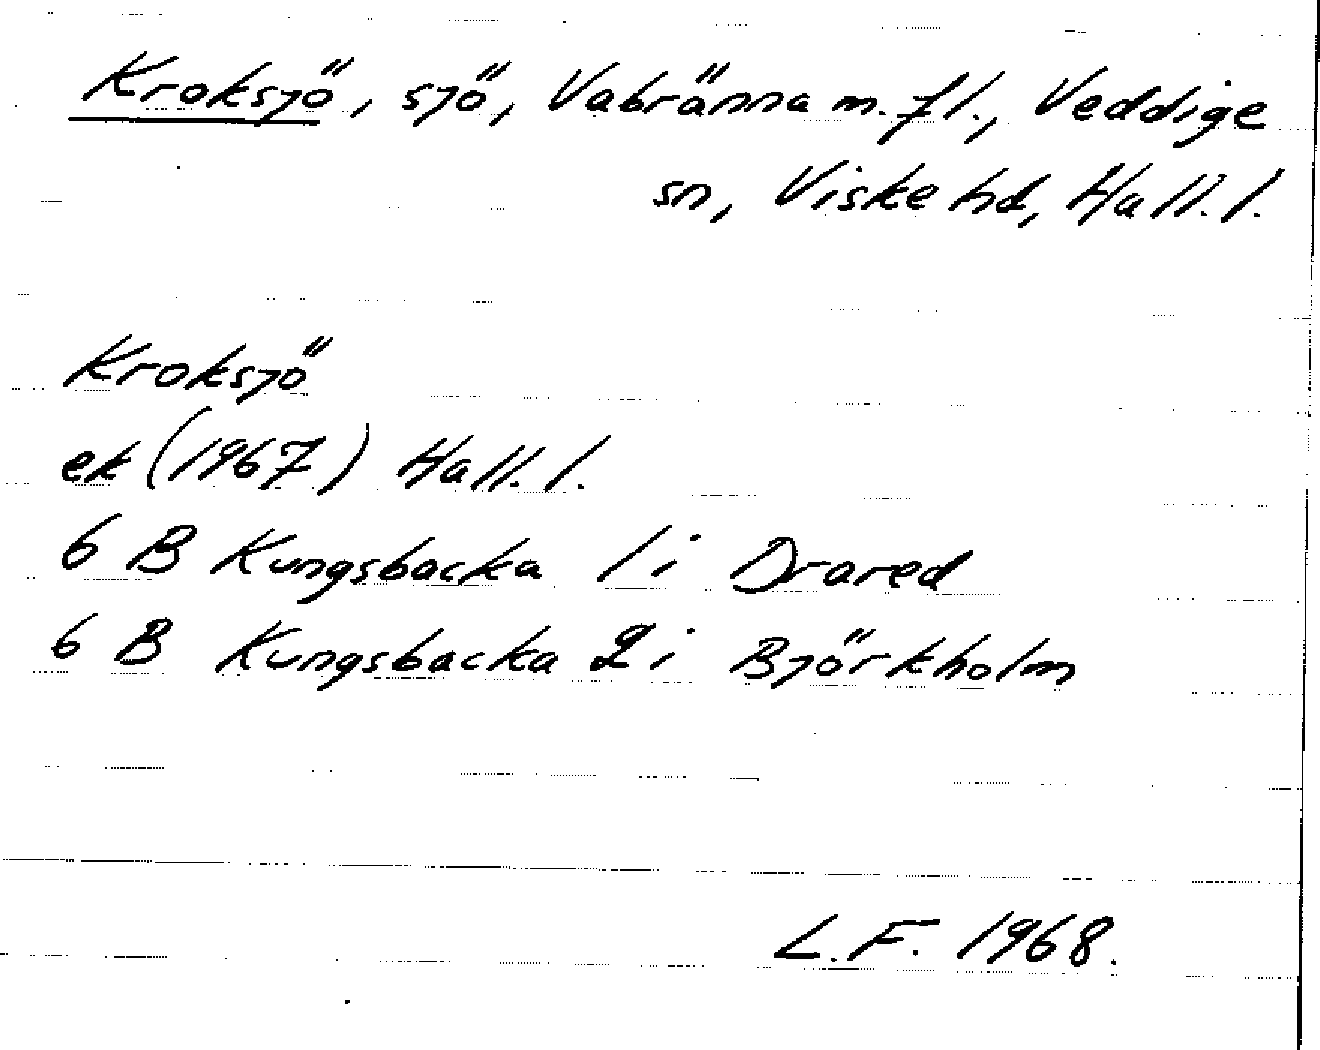 Kroksjö, sjö, Vabränna m.fl., Veddige
sn, Viske hd, Hall. l.
Kroksjö
ek (1967) Hall. l.
6 B Kungsbacka 1 i Drared
6 B Kungsbacka 2 i Björkholm
L.F. 1968.